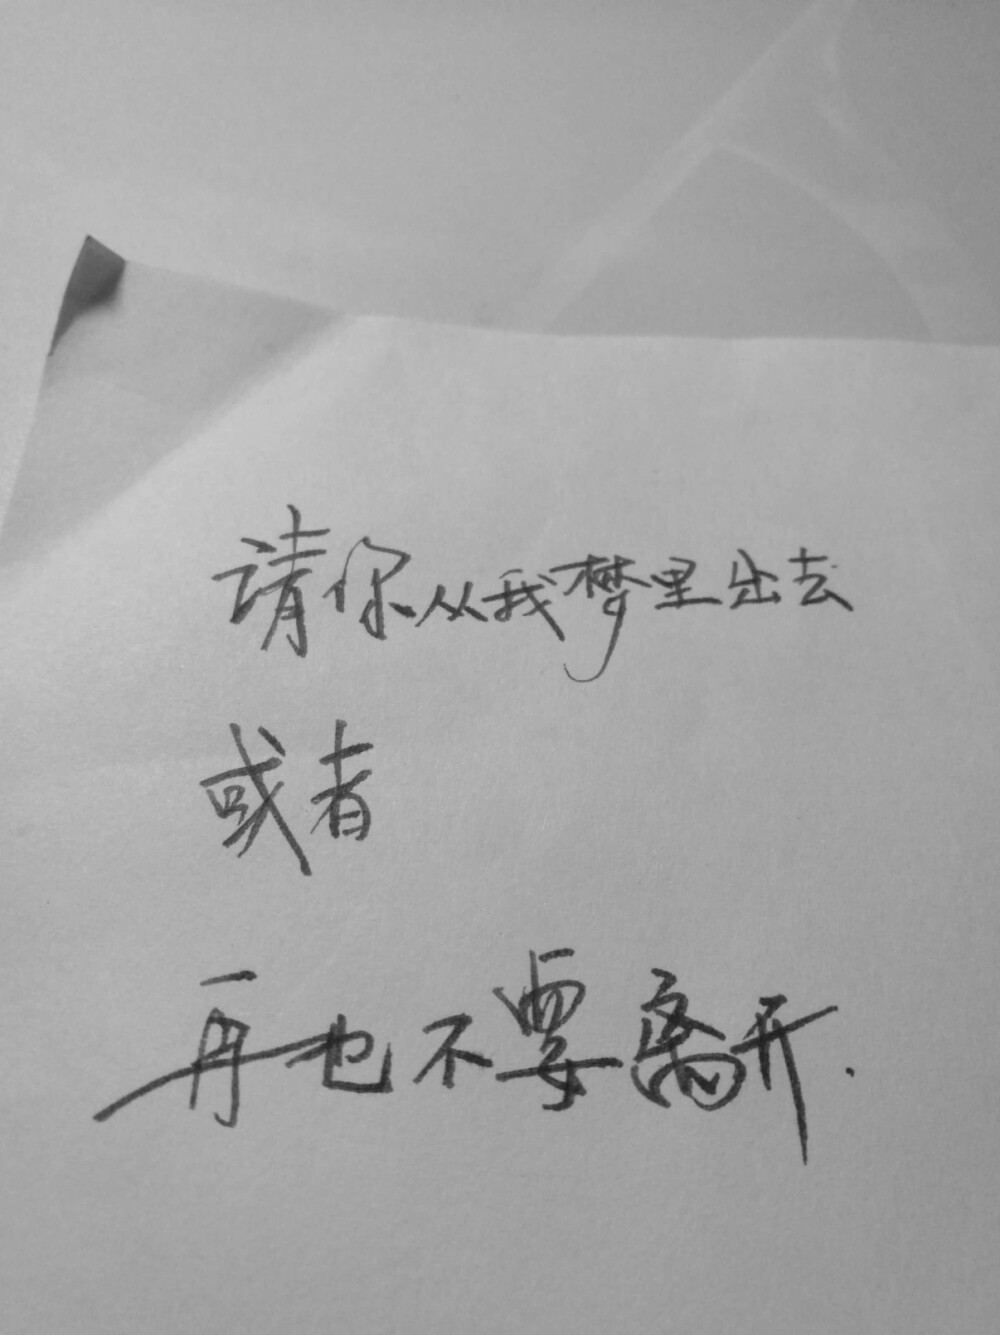 请你从我梦里出去
或者
再也不要离开.